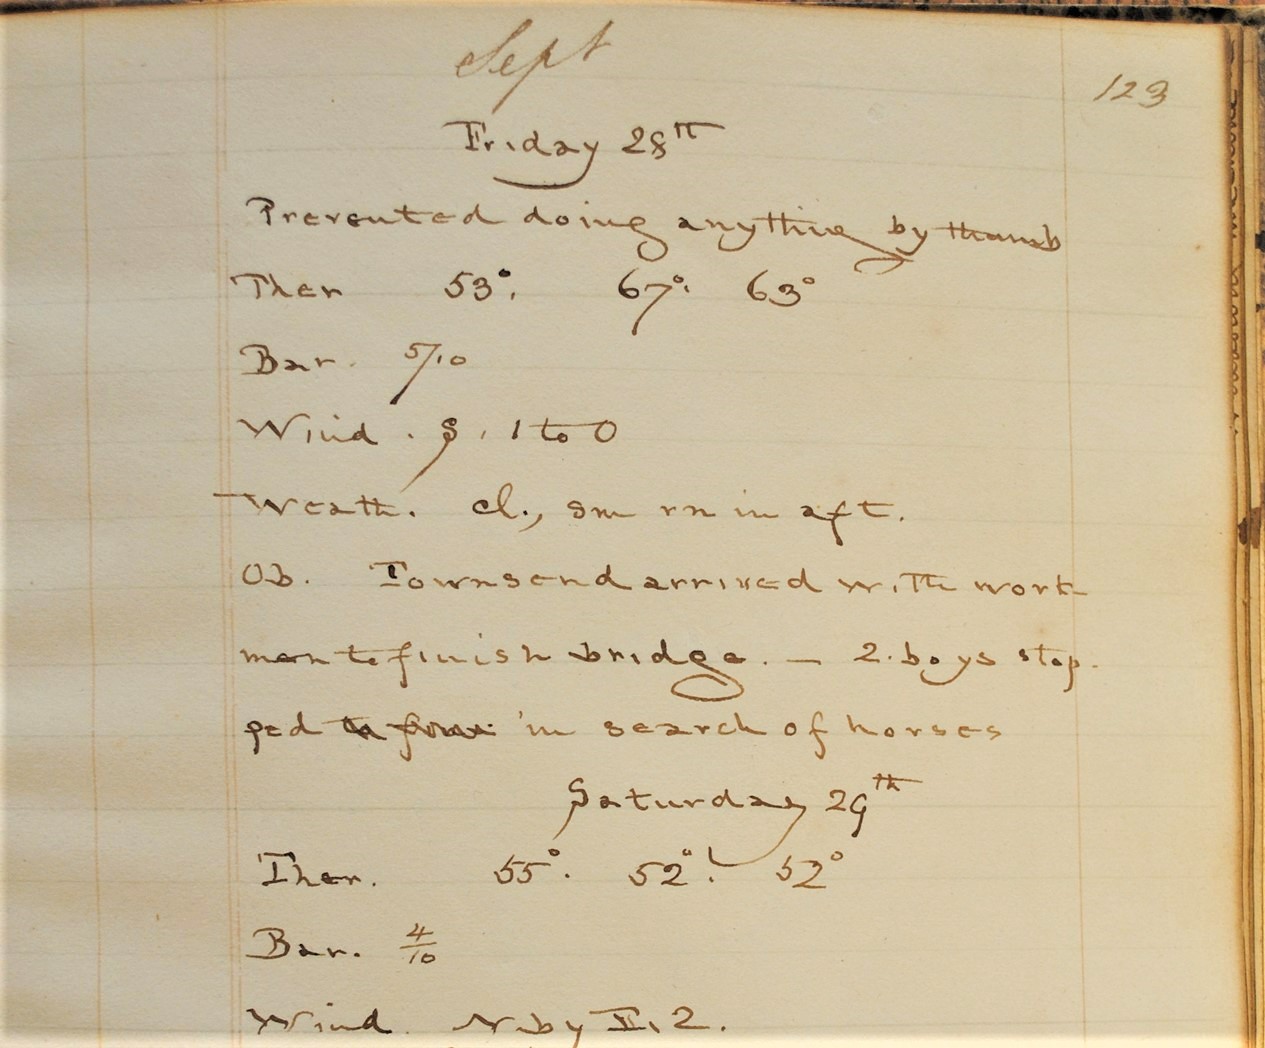 Sept
123
Friday 28th
Prevented doing anything by thumb
Ther 53°. 67°. 63°
Bar. 5/10
Wind. S. 1 to 0
Weath. cl., sm rn in aft.
Ob. Townsend arrived with work-
men to finish bridge. — 2 boys stop-
ped in search of horses
Saturday 29th
Ther. 55°. 52°. 52°
Bar. 4/10
Wind N by E. 2.